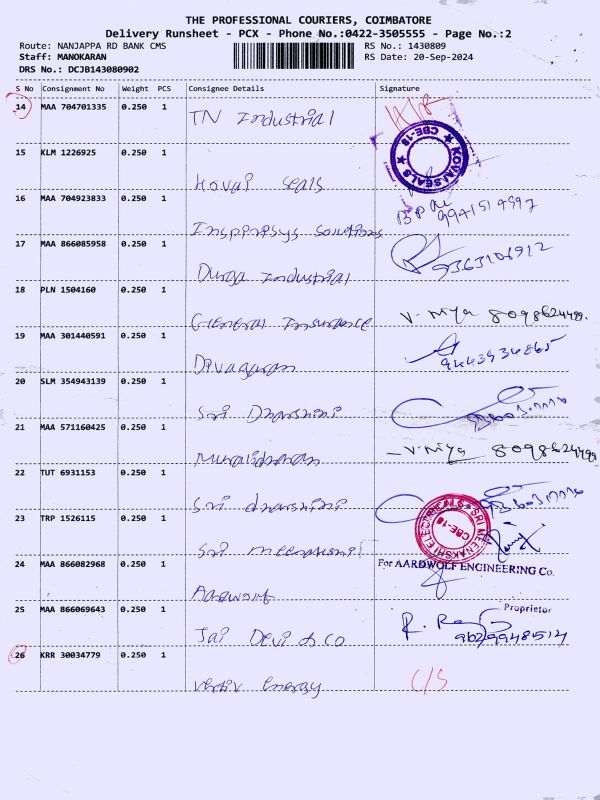 THE PROFESSIONAL COURIERS, COIMBATORE
Delivery Runsheet - PCX - Phone No.:0422-3505555 - Page No.:2
Route: NANJAPPA RD BANK CMS RS No.: 1430809
Staff: MANOKARAN RS Date: 20-Sep-2024
DRS No.: DCJB143080902
S No Consignment No Weight PCS Consignee Details Signature
14 MAA 704701335 0.250 1 TN Industrial
15 KLM 1226925 0.250 1 Kovai seals KOVAI SEALS CBE-18
16 MAA 704923833 0.250 1 Inspirisys solutions
17 MAA 866085958 0.250 1 Durga Industrial 9363106912
18 PLN 1504160 0.250 1 General Insurance V. Niya 8098624499.
19 MAA 301440591 0.250 1 Divagaran 9443934865
20 SLM 354943139 0.250 1 Sri Dharshini
21 MAA 571160425 0.250 1 Muralidharan V. Niya 8098624499
22 TUT 6931153 0.250 1 Sri dharshini
23 TRP 1526115 0.250 1 Sri meenakshi SRI MEENAKSHI ELECTRICALS CBE-18
24 MAA 866082968 0.250 1 Aardwolf For AARDWOLF ENGINEERING Co.
Proprietor
25 MAA 866069643 0.250 1 Jai Devi & CO
26 KRR 30034779 0.250 1 vertiv energy C/S